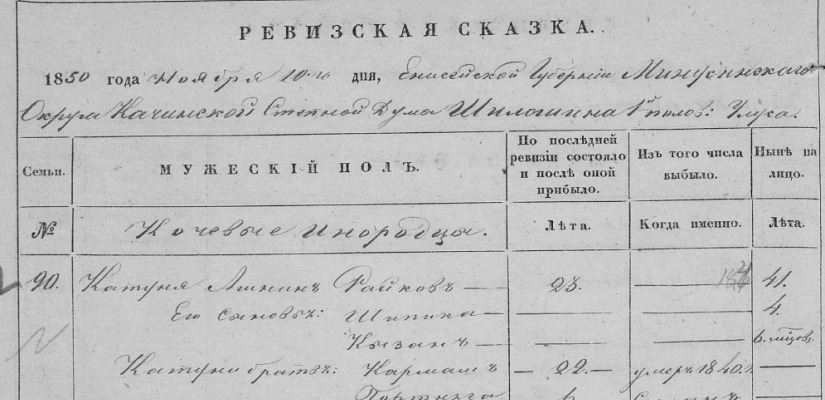 РЕВИЗСКАЯ СКАЗКА.
1850 года Ноября 10-го дня, Енисейской Губерніи Минусинскаго
Округа Качинской Степной Думы Шилошина 1й полов: Улуса.
Семьи. МУЖЕСКІЙ ПОЛЪ. По послѣдней ревизіи состояло и послѣ оной прибыло. Изъ того числа выбыло. Нынѣ на лицо.
№ Кочевые Инородцы. Лѣта. Когда именно. Лѣта.
90. Катуня Райковъ — 23. — 41.
Его сыновья: Шипика — — — 4.
Кызанъ — — — 6. мѣсяцовъ
Катуни братъ: Кармашъ — 22. — умеръ 1840. —